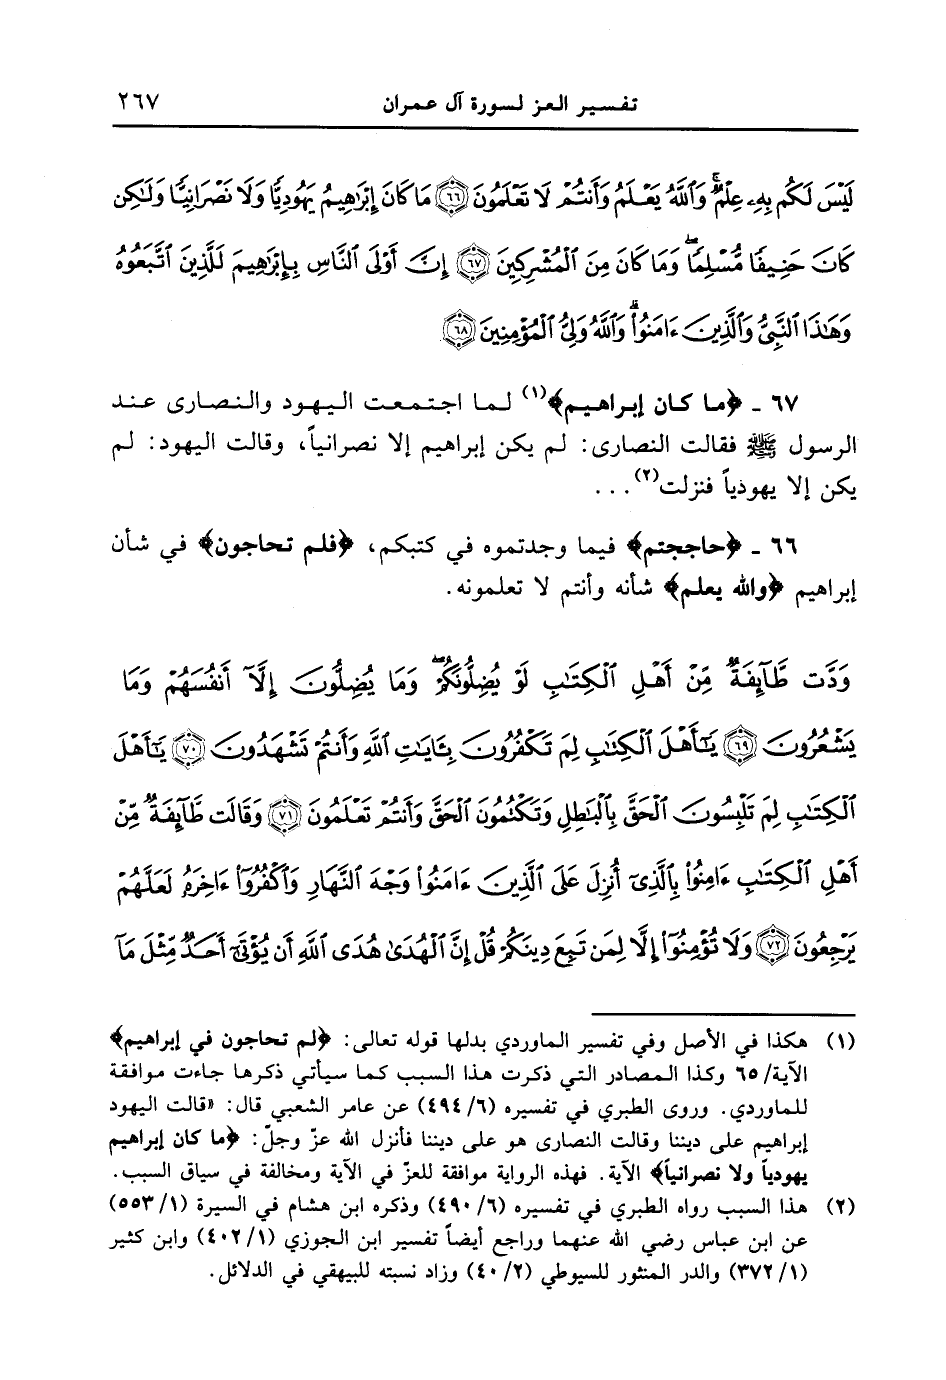 تفسير العز لسورة آل عمران ٢٦٧
لَيْسَ لَكُم بِهِۦ عِلْمٌ ۚ وَٱللَّهُ يَعْلَمُ وَأَنتُمْ لَا تَعْلَمُونَ ٦٦ مَا كَانَ إِبْرَٰهِيمُ يَهُودِيًّا وَلَا نَصْرَانِيًّا وَلَٰكِن
كَانَ حَنِيفًا مُّسْلِمًا ۖ وَمَا كَانَ مِنَ ٱلْمُشْرِكِينَ ٦٧ إِنَّ أَوْلَى ٱلنَّاسِ بِإِبْرَٰهِيمَ لَلَّذِينَ ٱتَّبَعُوهُ
وَهَٰذَا ٱلنَّبِىُّ وَٱلَّذِينَ ءَامَنُوا۟ ۗ وَٱللَّهُ وَلِىُّ ٱلْمُؤْمِنِينَ ٦٨
٦٧ ـ ﴿ما كان إبراهيم﴾(١) لما اجتمعت اليهود والنصارى عند
الرسول ﷺ فقالت النصارى: لم يكن إبراهيم إلا نصرانياً، وقالت اليهود: لم
يكن إلا يهودياً فنزلت(٢) . . .
٦٦ ـ ﴿حاججتم﴾ فيما وجدتموه في كتبكم، ﴿فلم تحاجون﴾ في شأن
إبراهيم ﴿والله يعلم﴾ شأنه وأنتم لا تعلمونه.
وَدَّت طَّآئِفَةٌ مِّنْ أَهْلِ ٱلْكِتَٰبِ لَوْ يُضِلُّونَكُمْ ۖ وَمَا يُضِلُّونَ إِلَّآ أَنفُسَهُمْ وَمَا
يَشْعُرُونَ ٦٩ يَٰٓأَهْلَ ٱلْكِتَٰبِ لِمَ تَكْفُرُونَ بِـَٔايَٰتِ ٱللَّهِ وَأَنتُمْ تَشْهَدُونَ ٧٠ يَٰٓأَهْلَ
ٱلْكِتَٰبِ لِمَ تَلْبِسُونَ ٱلْحَقَّ بِٱلْبَٰطِلِ وَتَكْتُمُونَ ٱلْحَقَّ وَأَنتُمْ تَعْلَمُونَ ٧١ وَقَالَت طَّآئِفَةٌ مِّنْ
أَهْلِ ٱلْكِتَٰبِ ءَامِنُوا۟ بِٱلَّذِىٓ أُنزِلَ عَلَى ٱلَّذِينَ ءَامَنُوا۟ وَجْهَ ٱلنَّهَارِ وَٱكْفُرُوٓا۟ ءَاخِرَهُۥ لَعَلَّهُمْ
يَرْجِعُونَ ٧٢ وَلَا تُؤْمِنُوٓا۟ إِلَّا لِمَن تَبِعَ دِينَكُمْ قُلْ إِنَّ ٱلْهُدَىٰ هُدَى ٱللَّهِ أَن يُؤْتَىٰٓ أَحَدٌ مِّثْلَ مَآ
(١) هكذا في الأصل وفي تفسير الماوردي بدلها قوله تعالى: ﴿لم تحاجون في إبراهيم﴾
الآية/ ٦٥ وكذا المصادر التي ذكرت هذا السبب كما سيأتي ذكرها جاءت موافقة
للماوردي. وروى الطبري في تفسيره (٤٩٤/٦) عن عامر الشعبي قال: «قالت اليهود
إبراهيم على ديننا وقالت النصارى هو على ديننا فأنزل الله عزّ وجلّ: ﴿ما كان إبراهيم
يهودياً ولا نصرانياً﴾ الآية. فهذه الرواية موافقة للعزّ في الآية ومخالفة في سياق السبب.
(٢) هذا السبب رواه الطبري في تفسيره (٤٩٠/٦) وذكره ابن هشام في السيرة (٥٥٣/١)
عن ابن عباس رضي الله عنهما وراجع أيضاً تفسير ابن الجوزي (٤٠٢/١) وابن كثير
(٣٧٢/١) والدر المنثور للسيوطي (٤٠/٢) وزاد نسبته للبيهقي في الدلائل.